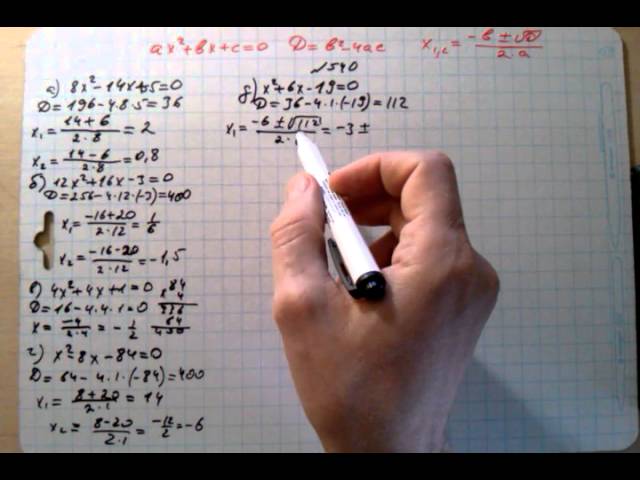 ax²+bx+c=0 D=b²-4ac x₁,₂=(-b±√D)/(2·a)
№540
а) 8x²-14x+5=0
D=196-4·8·5=36
x₁=(14+6)/(2·8)=2
x₂=(14-6)/(2·8)=0,8
б) 12x²+16x-3=0
D=256-4·12·(-3)=400
x₁=(-16+20)/(2·12)=1/6
x₂=(-16-20)/(2·12)=-1,5
в) 4x²+4x+1=0
D=16-4·4·1=0
x=-4/(2·4)=-1/2
84
×4
336
64
400
г) x²-8x-84=0
D=64-4·1·(-84)=400
x₁=(8+20)/(2·1)=14
x₂=(8-20)/(2·1)=-12/2=-6
д) x²+6x-19=0
D=36-4·1·(-19)=112
x₁=(-6±√112)/(2·1)=-3±